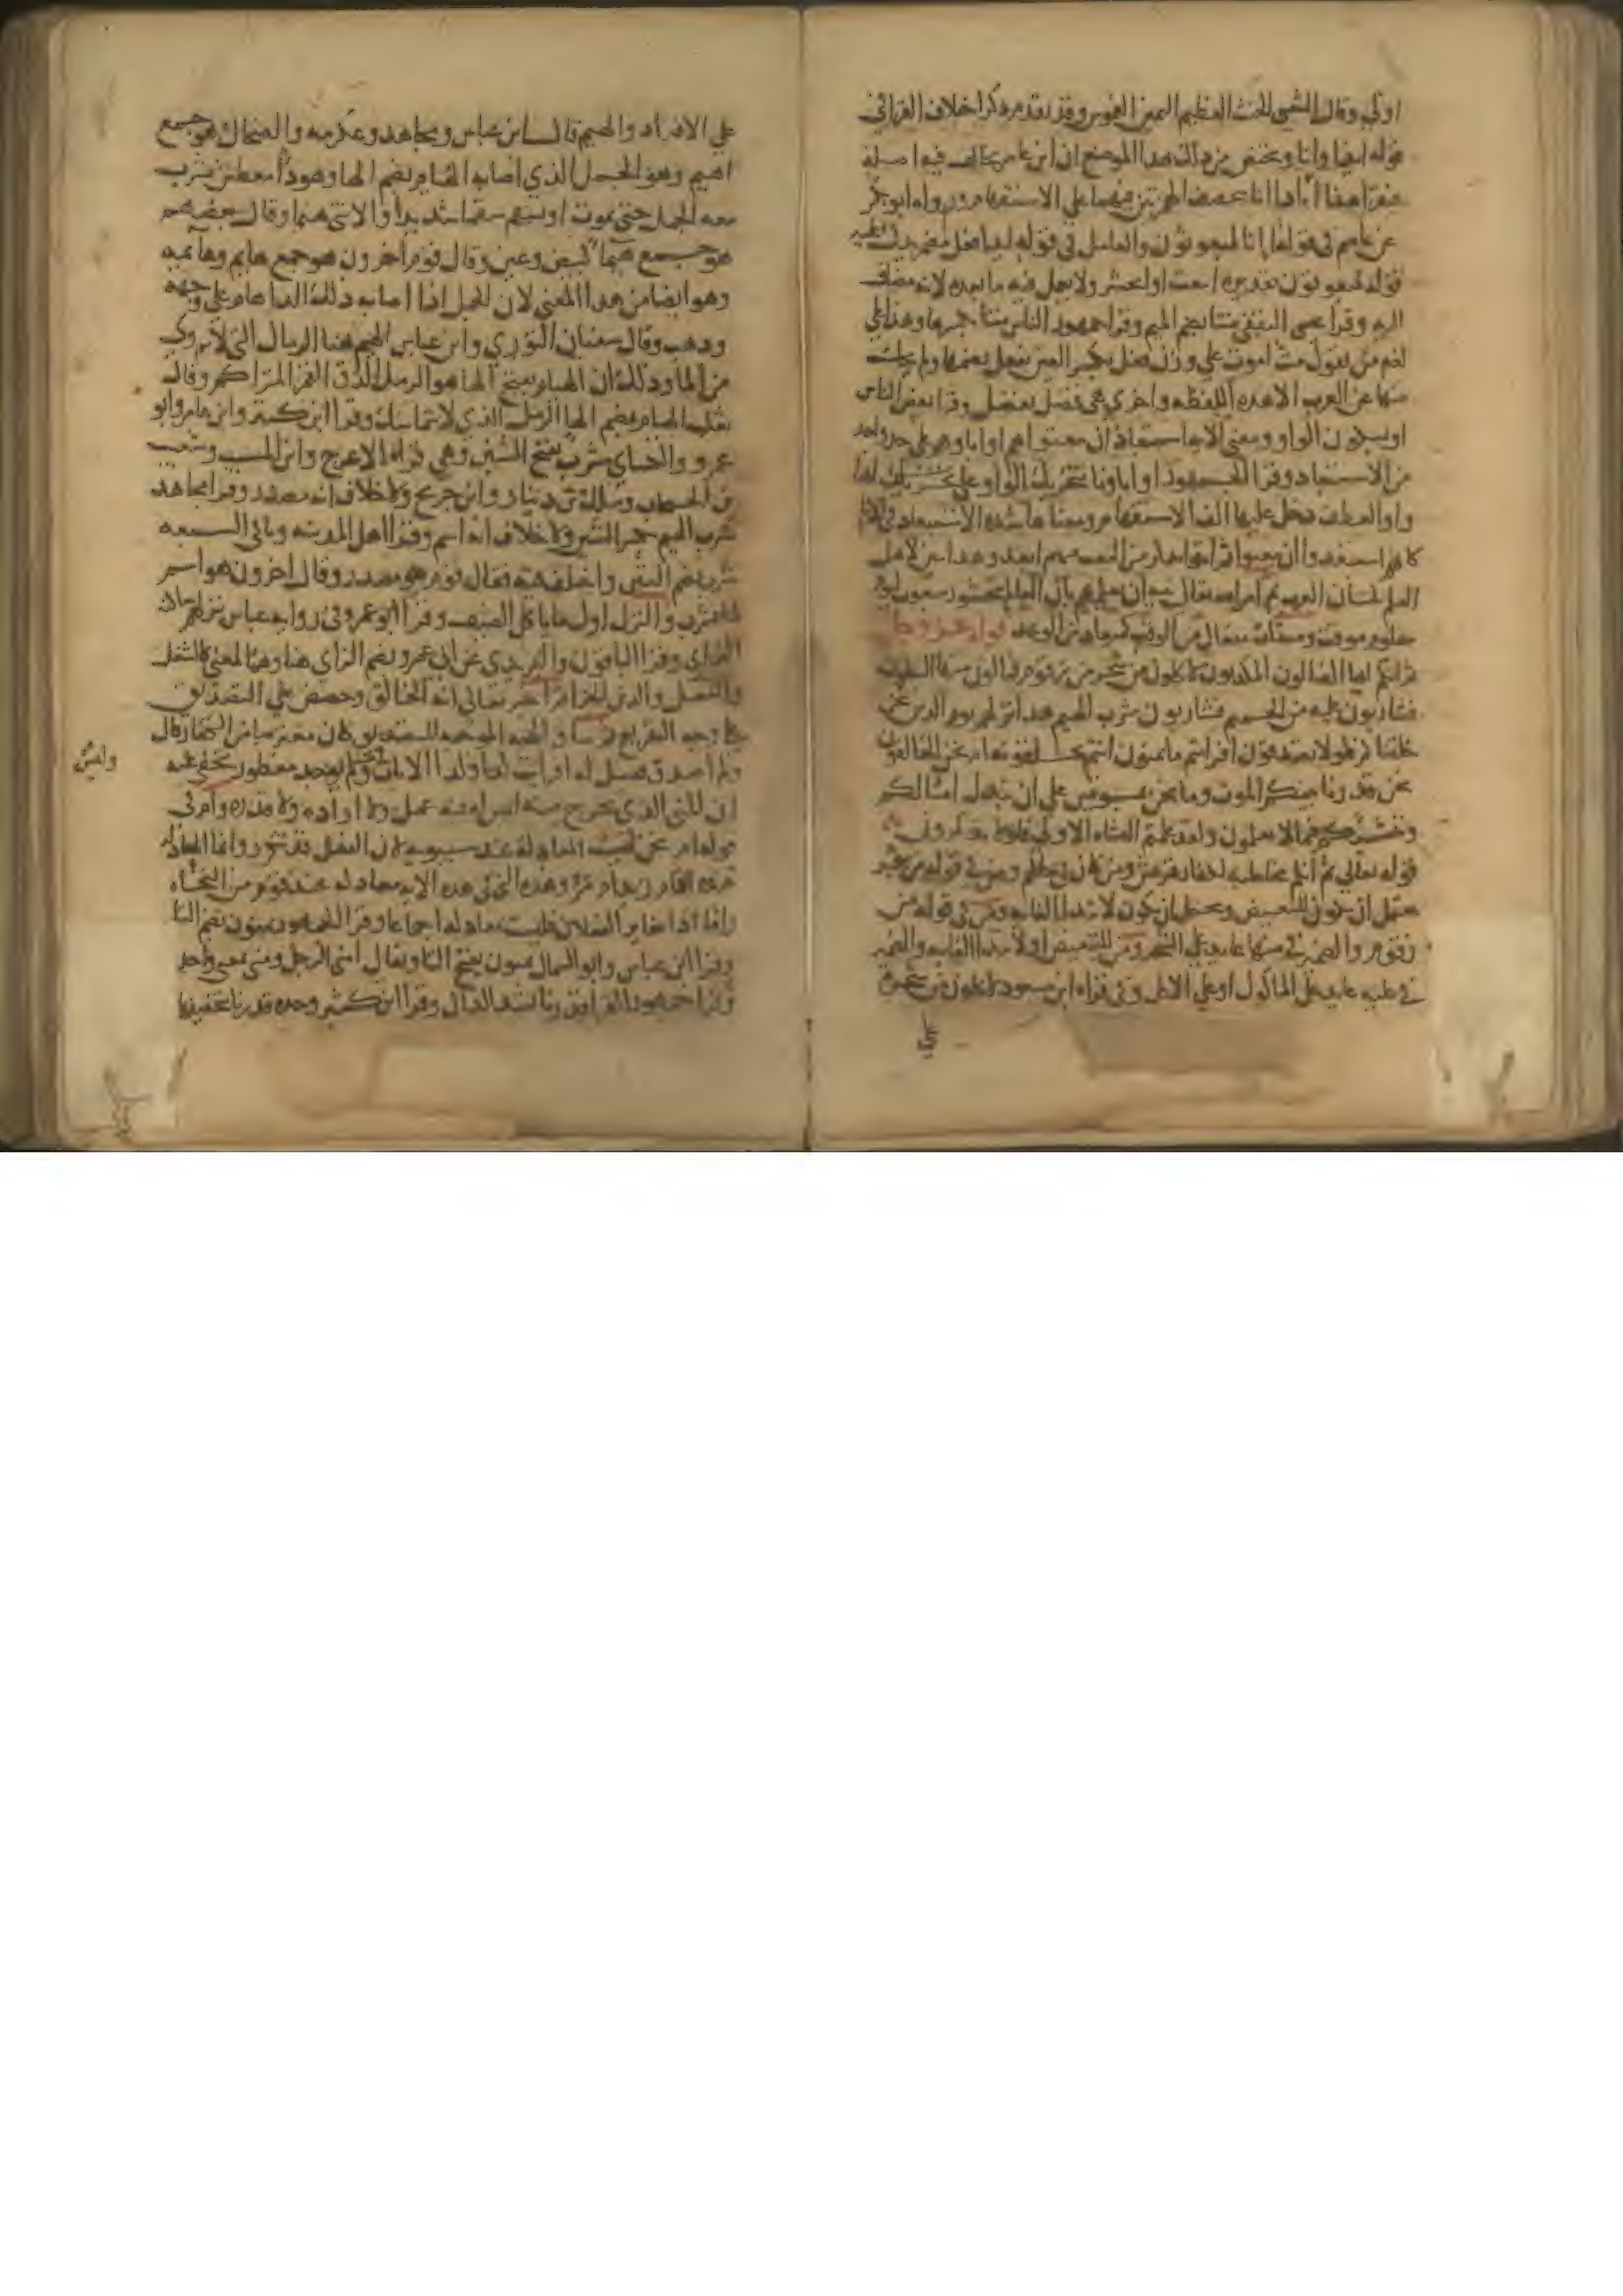 اولي وقال الشعبي الحنث العظيم اليمين الغموس وقد تقدم ذكر اختلاف القراء في
قوله ايذا وانا ويختص من ذلك بهذا الموضع ان ابن عامر يخالف فيه اصله
فقرا هنا أاذا اانا بتحقيق الهمزتين فيهما على الاستفهام ورواه ابو بكر
عن عاصم في قوله اانا لمبعوثون والعامل في قوله ايذا فعل مضمر يدل عليه
قوله لمبعوثون تقديره انبعث او انحشر ولا يعمل فيه ما بعده لانه مضاف
اليه وقرا عيسى الثقفي متنا بضم الميم وقرا جمهور الناس متنا بكسرها وهذا على
لغة من يقول مت اموت على وزن فعل بكسر العين يفعل بضمها ولم يحك
منها عن العرب الا هذه اللفظه واخرى هي فضل يفضل وقرا بعض الناس
او بسكون الواو ومعنى الآيه استبعاد ان يبعثوا هم واباوهم على حد واحد
من الاستبعاد وقرا الجمهور او اباونا بتحريك الواو على انها
واو العطف دخل عليها الف الاستفهام ومعناها شدة الاستبعاد في الابا
كانهم استبعدوا ان يبعثوا ثم اتوا بذكر من البعث فيهم ابعد وهذا بين لاهل
العلم بلسان العرب ثم امر الله تعالى نبيه ان يعلمهم بان العالم محشور مبعوث ليوم
معلوم موقت وميقات مفعال من الوقت كميعاد من الوعد قوله عز وجل
ثم انكم ايها الضالون المكذبون لاكلون من شجر من زقوم فمالون منها البطون
فشاربون عليه من الحميم فشاربون شرب الهيم هذا نزلهم يوم الدين نحن
خلقناكم فلولا تصدقون افرايتم ما تمنون انتم تخلقونه ام نحن الخالقون
نحن قدرنا بينكم الموت وما نحن بمسبوقين على ان نبدل امثالكم
وننشئكم فيما لا تعلمون ولقد علمتم النشاه الاولى فلولا تذكرون
قوله تعالى ثم انكم مخاطبه لكفار قريش ومن كان في حالهم ومن في قوله من شجر
يحتمل ان تكون للتبعيض ويحتمل ان تكون لابتدا الغايه ومن في قوله من
زقوم والضمير في منها عايد على الشجر ومن للتبعيض او لابتدا الغايه والضمير
في عليه عايد على الماكول او على الاكل وفي قراه ابن مسعود لاكلون من شجرة
على
على الافراد والهيم قال ابن عباس ومجاهد وعكرمه والضحاك هو جمع
اهيم وهو الجمل الذي اصابه الهيام بضم الها وهو دا معطش يشرب
معه الجمل حتى يموت او يسقم سقما شديدا والانثى هيما وقال بعضهم
هو جمع هيما كبيض وعين وقال قوم اخرون هو جمع هايم وهايمه
وهو ايضا من هذا المعنى لان الجمل اذا اصابه ذلك الدا هام على وجهه
وذهب وقال سفيان الثوري وابن عباس الهيم هنا الرمال التي لا تروى
من الما وذلك ان الهيام بفتح الها هو الرمل الدق الغمر المتراكم وقال
ثعلب الهيام بضم الها الرمل الذي لا يتماسك وقرا ابن كثير وابن عامر وابو
عمرو والكساي شرب بفتح الشين وهي قراءة الاعرج وابن المسيب وشعيب
بن الحبحاب ومالك بن دينار وابن جريج ولا خلاف انه مصدر وقرا مجاهد
شرب الهيم بكسر الشين ولا خلاف انه اسم وقرا اهل المدينه وباقي السبعه
شرب بضم الشين واختلف فيه فقال قوم هو مصدر وقال اخرون هو اسم
لما يشرب والنزل اول ما ياكل الضيف وقرا ابو عمرو في رواية عباس نزلهم ساكنة
الزاي وقرا الباقون واليزيدي عن ابي عمرو بضم الزاي هنا وهما لمعنى كالشغل
والشغل والدين الجزا ثم اخبر تعالى انه الخالق وحضض على التصديق
على وجه التقريع ثم ساق الحجه الموجبه للتصديق كان معترضا من الكفار قال
ولم اصدق فقيل له افرايت كذا وكذا الايات وليس يوجد مفطور يخفى عليه
ان المني الذي يخرج منه ليس له فيه عمل ولا اراده ولا قدره وام في
قوله ام نحن ليست المعادلة عند سيبويه لان الفعل قد تكرر وانما المعادلة
عنده اقام زيد ام عمرو وهذه التي في هذه الايه معادله عند قوم من النحاه
واما اذا تغاير الفعلان فليست بمعادله اجماعا وقرا الجمهور تمنون بضم التا
وقرا ابن عباس وابو السمال تمنون بفتح التا ويقال امنى الرجل ومنى بمعنى واحد
وقرا جمهور القرا قدرنا بشد الدال وقرا ابن كثير وحده قدرنا بتخفيفها
وليس